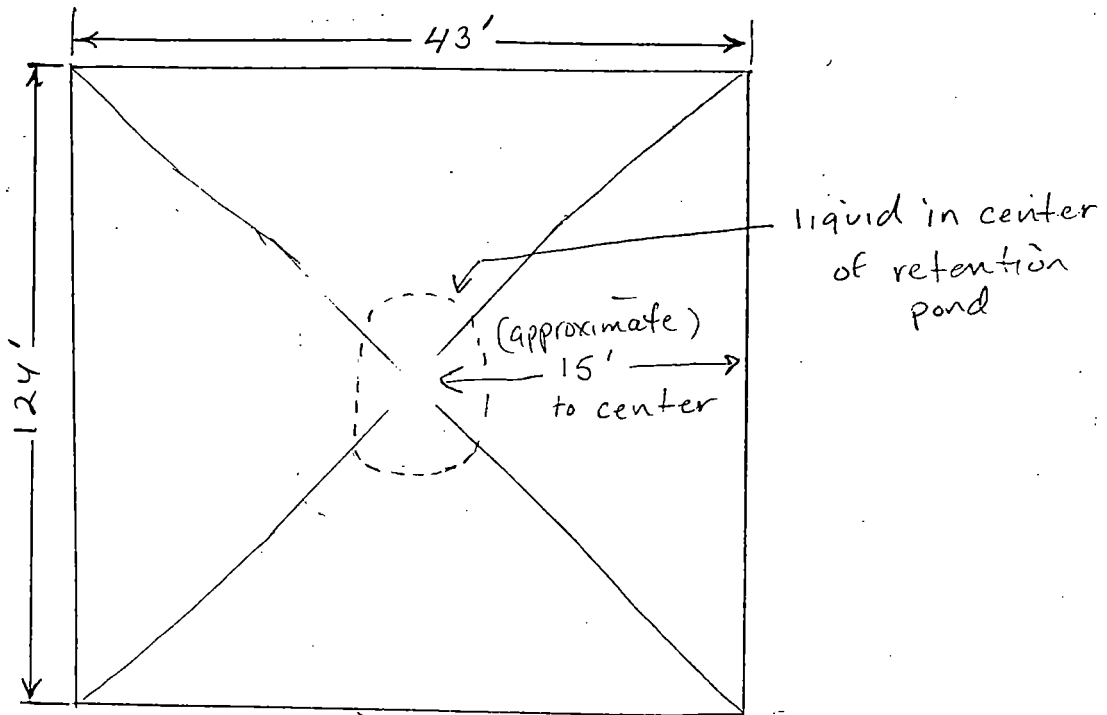 43'
liquid in center
of retention
pond
(approximate)
15'
to center
124'